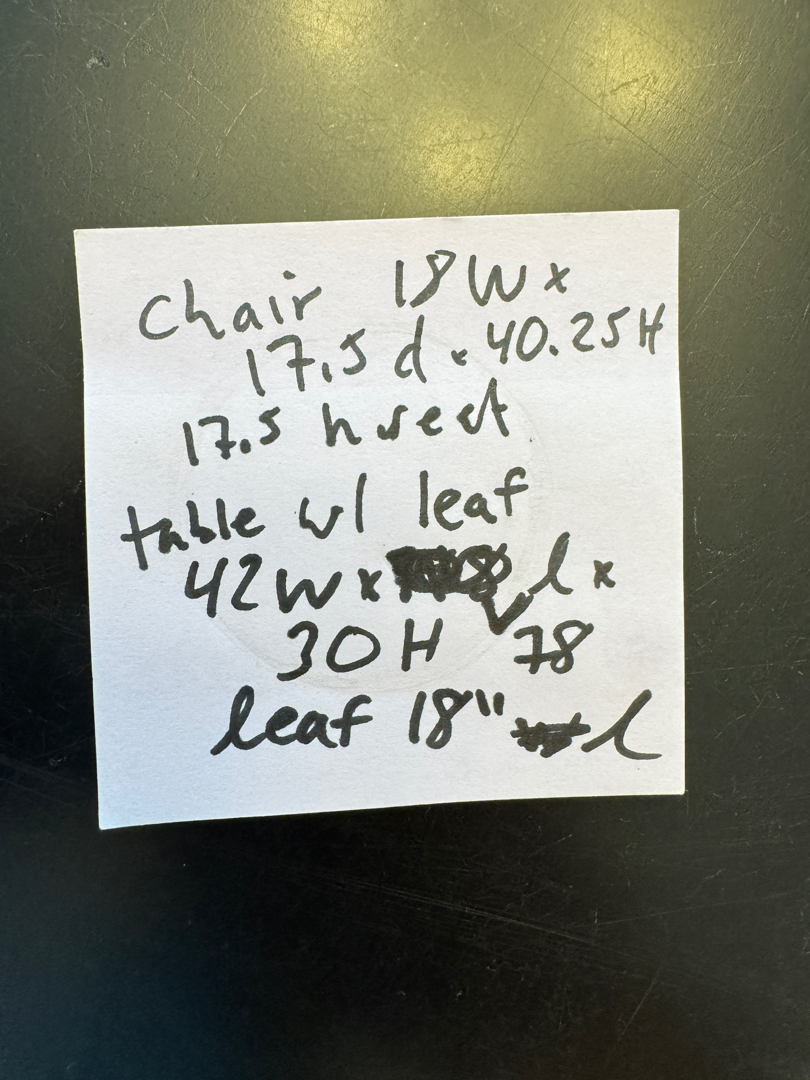 Chair 18W x
17.5 d x 40.25H
17.5 h seat
table w/ leaf
42W x 78 l x
30H
leaf 18" l